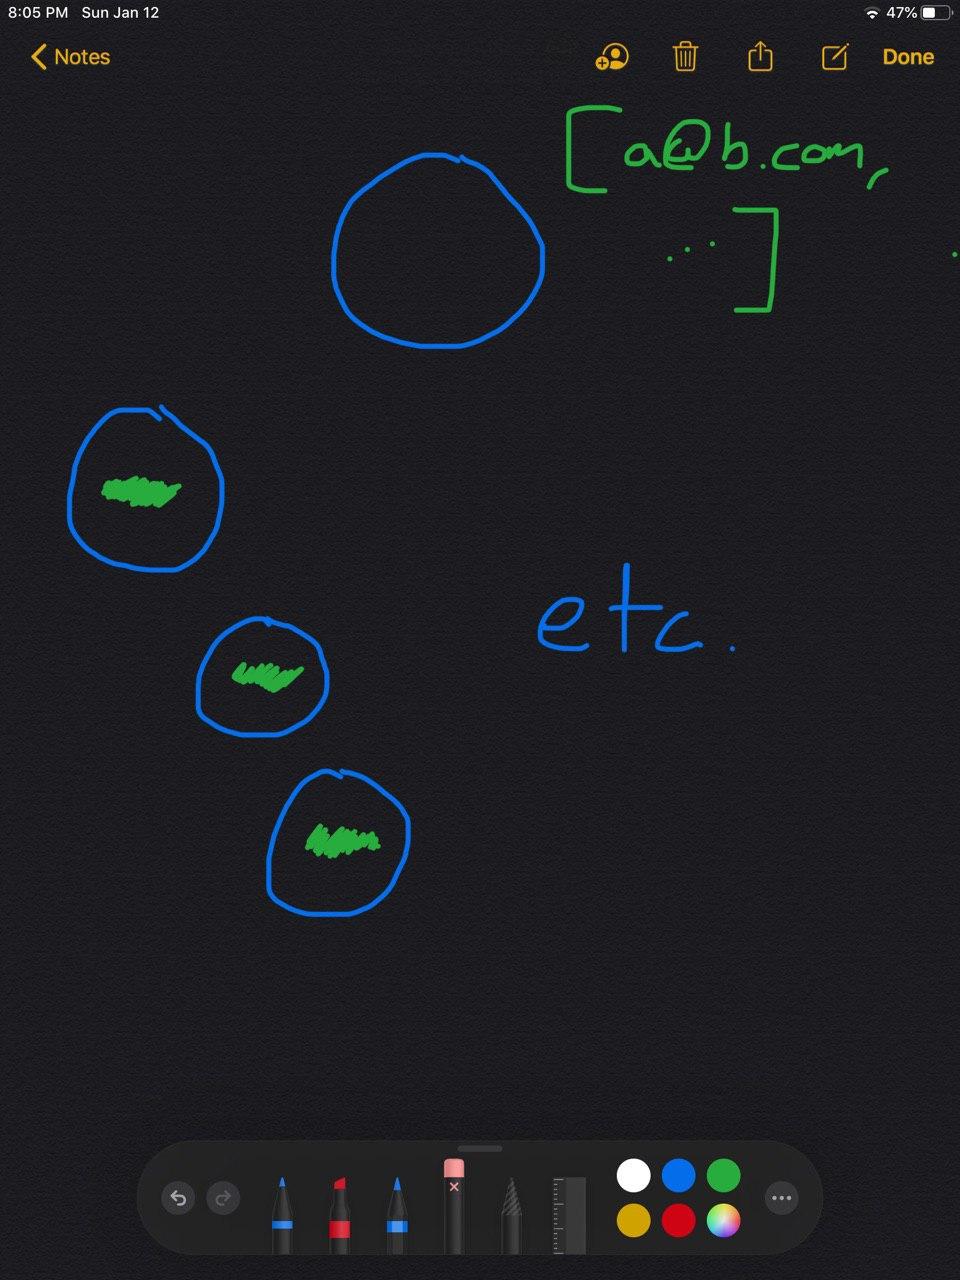 8:05 PM Sun Jan 12 47%
Notes Done
[a@b.com,
...]
etc.